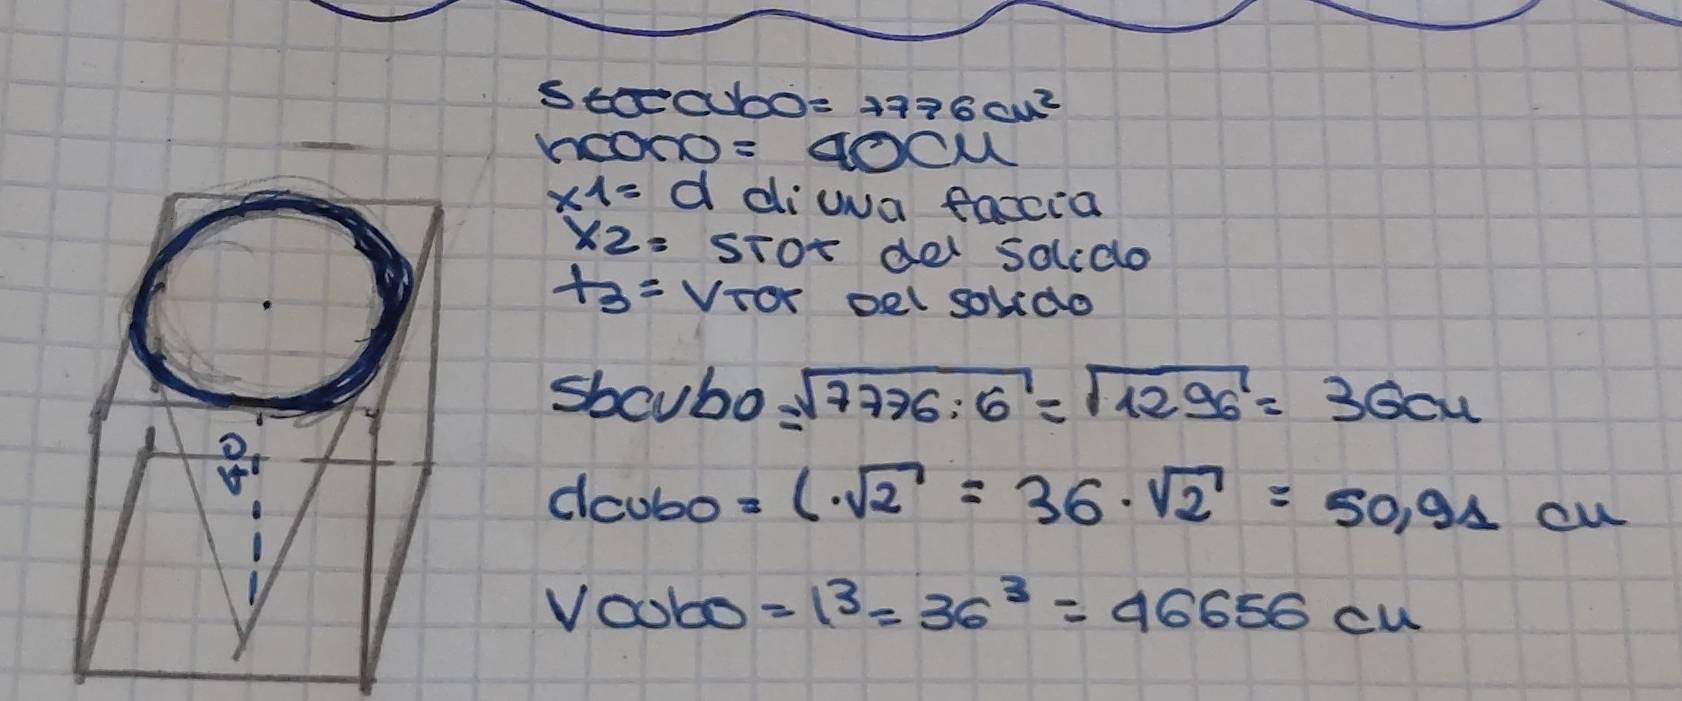 Stotcubo= 7776cm²
hcono= 40cm
x1= d di una faccia
x2= STot del Solido
x3= VTot Del solido
40
Sbcubo=√7776:6 = √1296 = 36cm
dcubo= l·√2 = 36·√2 = 50,91 cm
Vcubo=l³=36³= 46656 cm